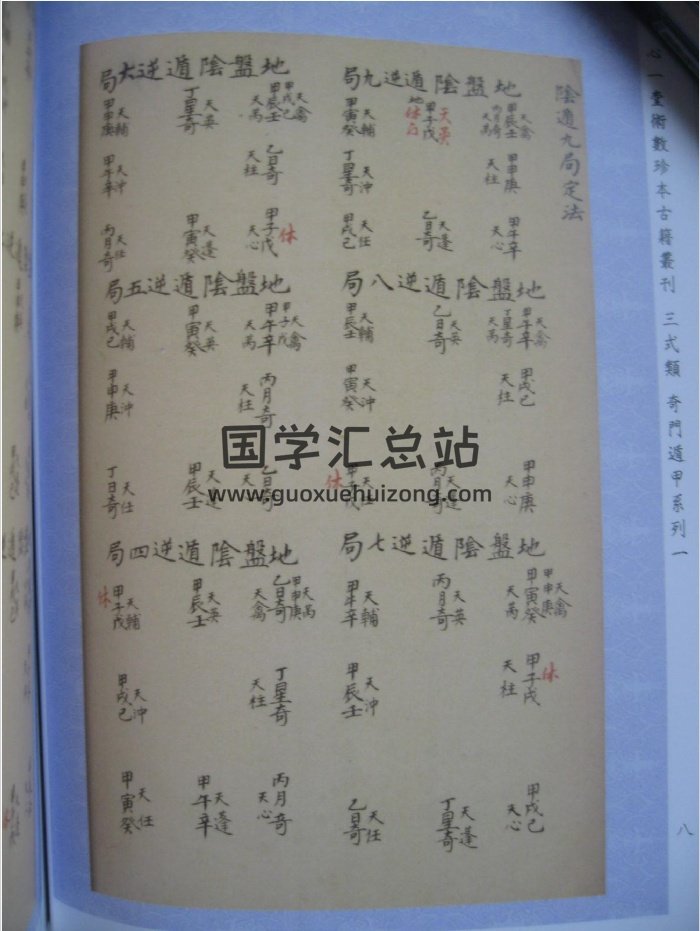 心一堂術數珍本古籍叢刊 三式類 奇門遁甲系列一
八
陰遁九局定法
地盤陰遁逆九局
天禽
甲辰壬
丙月奇
天芮
天英
甲子戊
地
休
天輔
甲寅癸
甲申庚
天柱
天沖
丁星奇
甲午辛
天心
天蓬
乙日奇
天任
甲戌己
地盤陰遁逆八局
天禽
甲午辛
丁星奇
天芮
天英
乙日奇
天輔
甲辰壬
甲戌己
天柱
天沖
甲寅癸
甲申庚
天心
天蓬
丙月奇
天任
甲子戊
休
地盤陰遁逆七局
天禽
甲申庚
甲寅癸
天芮
天英
丙月奇
天輔
甲午辛
休
甲子戊
天柱
天沖
甲辰壬
甲戌己
天心
天蓬
丁星奇
天任
乙日奇
地盤陰遁逆六局
天禽
甲戌己
甲辰壬
天芮
天英
丁星奇
天輔
甲申庚
乙日奇
天柱
天沖
甲午辛
休
甲子戊
天心
天蓬
甲寅癸
天任
丙月奇
地盤陰遁逆五局
天禽
甲子戊
甲午辛
天芮
天英
甲寅癸
天輔
甲戌己
丙月奇
天柱
天沖
甲申庚
乙日奇
天
天蓬
甲辰壬
天任
丁日奇
地盤陰遁逆四局
天芮
甲申庚
乙日奇
天禽
天英
甲辰壬
天輔
甲子戊
休
丁星奇
天柱
天沖
甲戌己
丙月奇
天心
天蓬
甲午辛
天任
甲寅癸
国学汇总站
www.guoxuehuizong.com